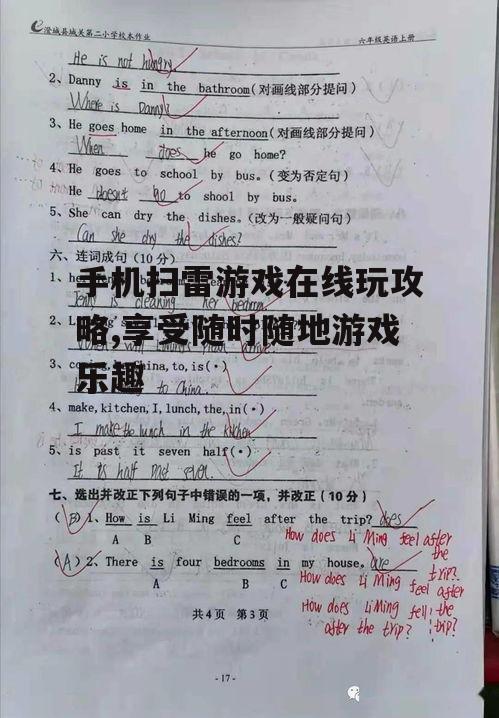 澄城县城关第二小学校本作业 六年级英语上册
He is not hungry
2、Danny is in the bathroom(对画线部分提问)
Where is Danny?
3、He goes home in the afternoon(对画线部分提问)
When does he go home?
4、He goes to school by bus.(变为否定句)
He doesn't go to shool by bus.
5、She can dry the dishes.(改为一般疑问句)
Can she dry the dishes?
六、连词成句(10分)
1、
Jenny is cleaning her bedroom.
手机扫雷游戏在线玩攻
2、
略,享受随时随地游戏
3、 China,to,is(•)
乐趣 to China.
4、make,kitchen,I,lunch,the,in(•)
I make the lunch in the kitchen
5、is past it seven half(•)
It is half past seven.
七、选出并改正下列句子中错误的一项,并改正(10分)
(B)1、How is Li Ming feel after the trip? does
A B C
How does Li Ming feel after the trip?
(A)2、There is four bedrooms in my house. are
A B C
How does Li Ming feel after the trip?
How does Li Ming fell after the trip?
共4页 第3页
- 17 -